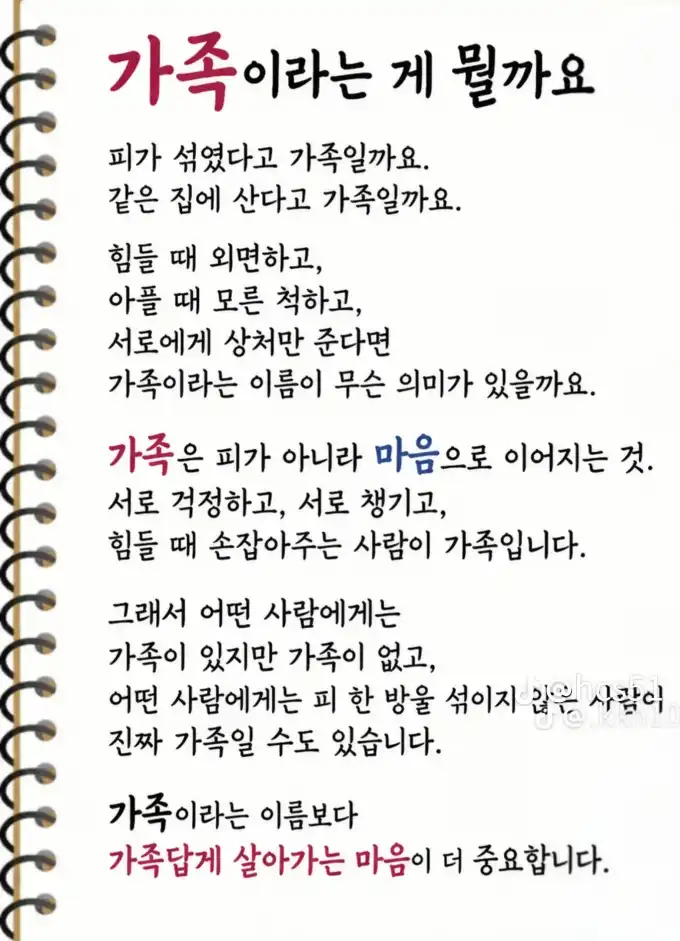 가족이라는 게 뭘까요
피가 섞였다고 가족일까요.
같은 집에 산다고 가족일까요.
힘들 때 외면하고,
아플 때 모른 척하고,
서로에게 상처만 준다면
가족이라는 이름이 무슨 의미가 있을까요.
가족은 피가 아니라 마음으로 이어지는 것.
서로 걱정하고, 서로 챙기고,
힘들 때 손잡아주는 사람이 가족입니다.
그래서 어떤 사람에게는
가족이 있지만 가족이 없고,
어떤 사람에게는 피 한 방울 섞이지 않은 사람이
진짜 가족일 수도 있습니다.
가족이라는 이름보다
가족답게 살아가는 마음이 더 중요합니다.